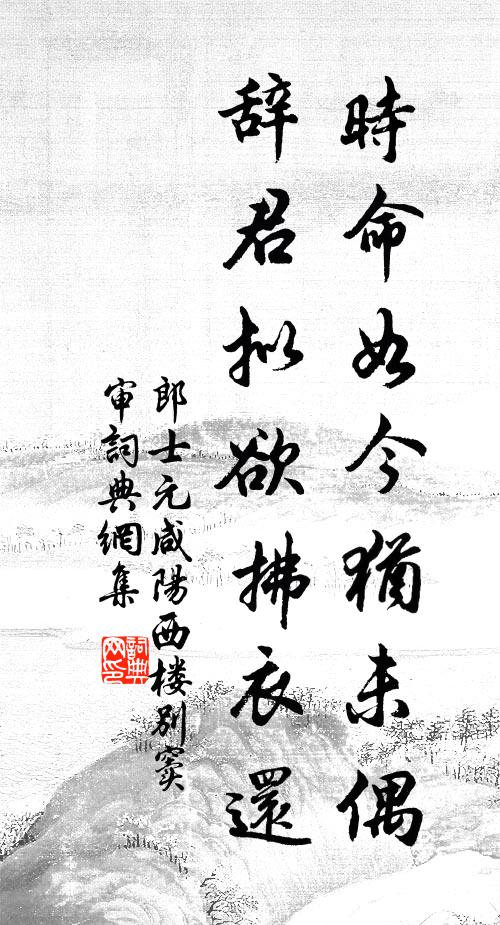 時命如今猶未偶
辞君拟欲拂衣還
郎士元咸陽西楼別窦
审詞典網集
詞典
网印